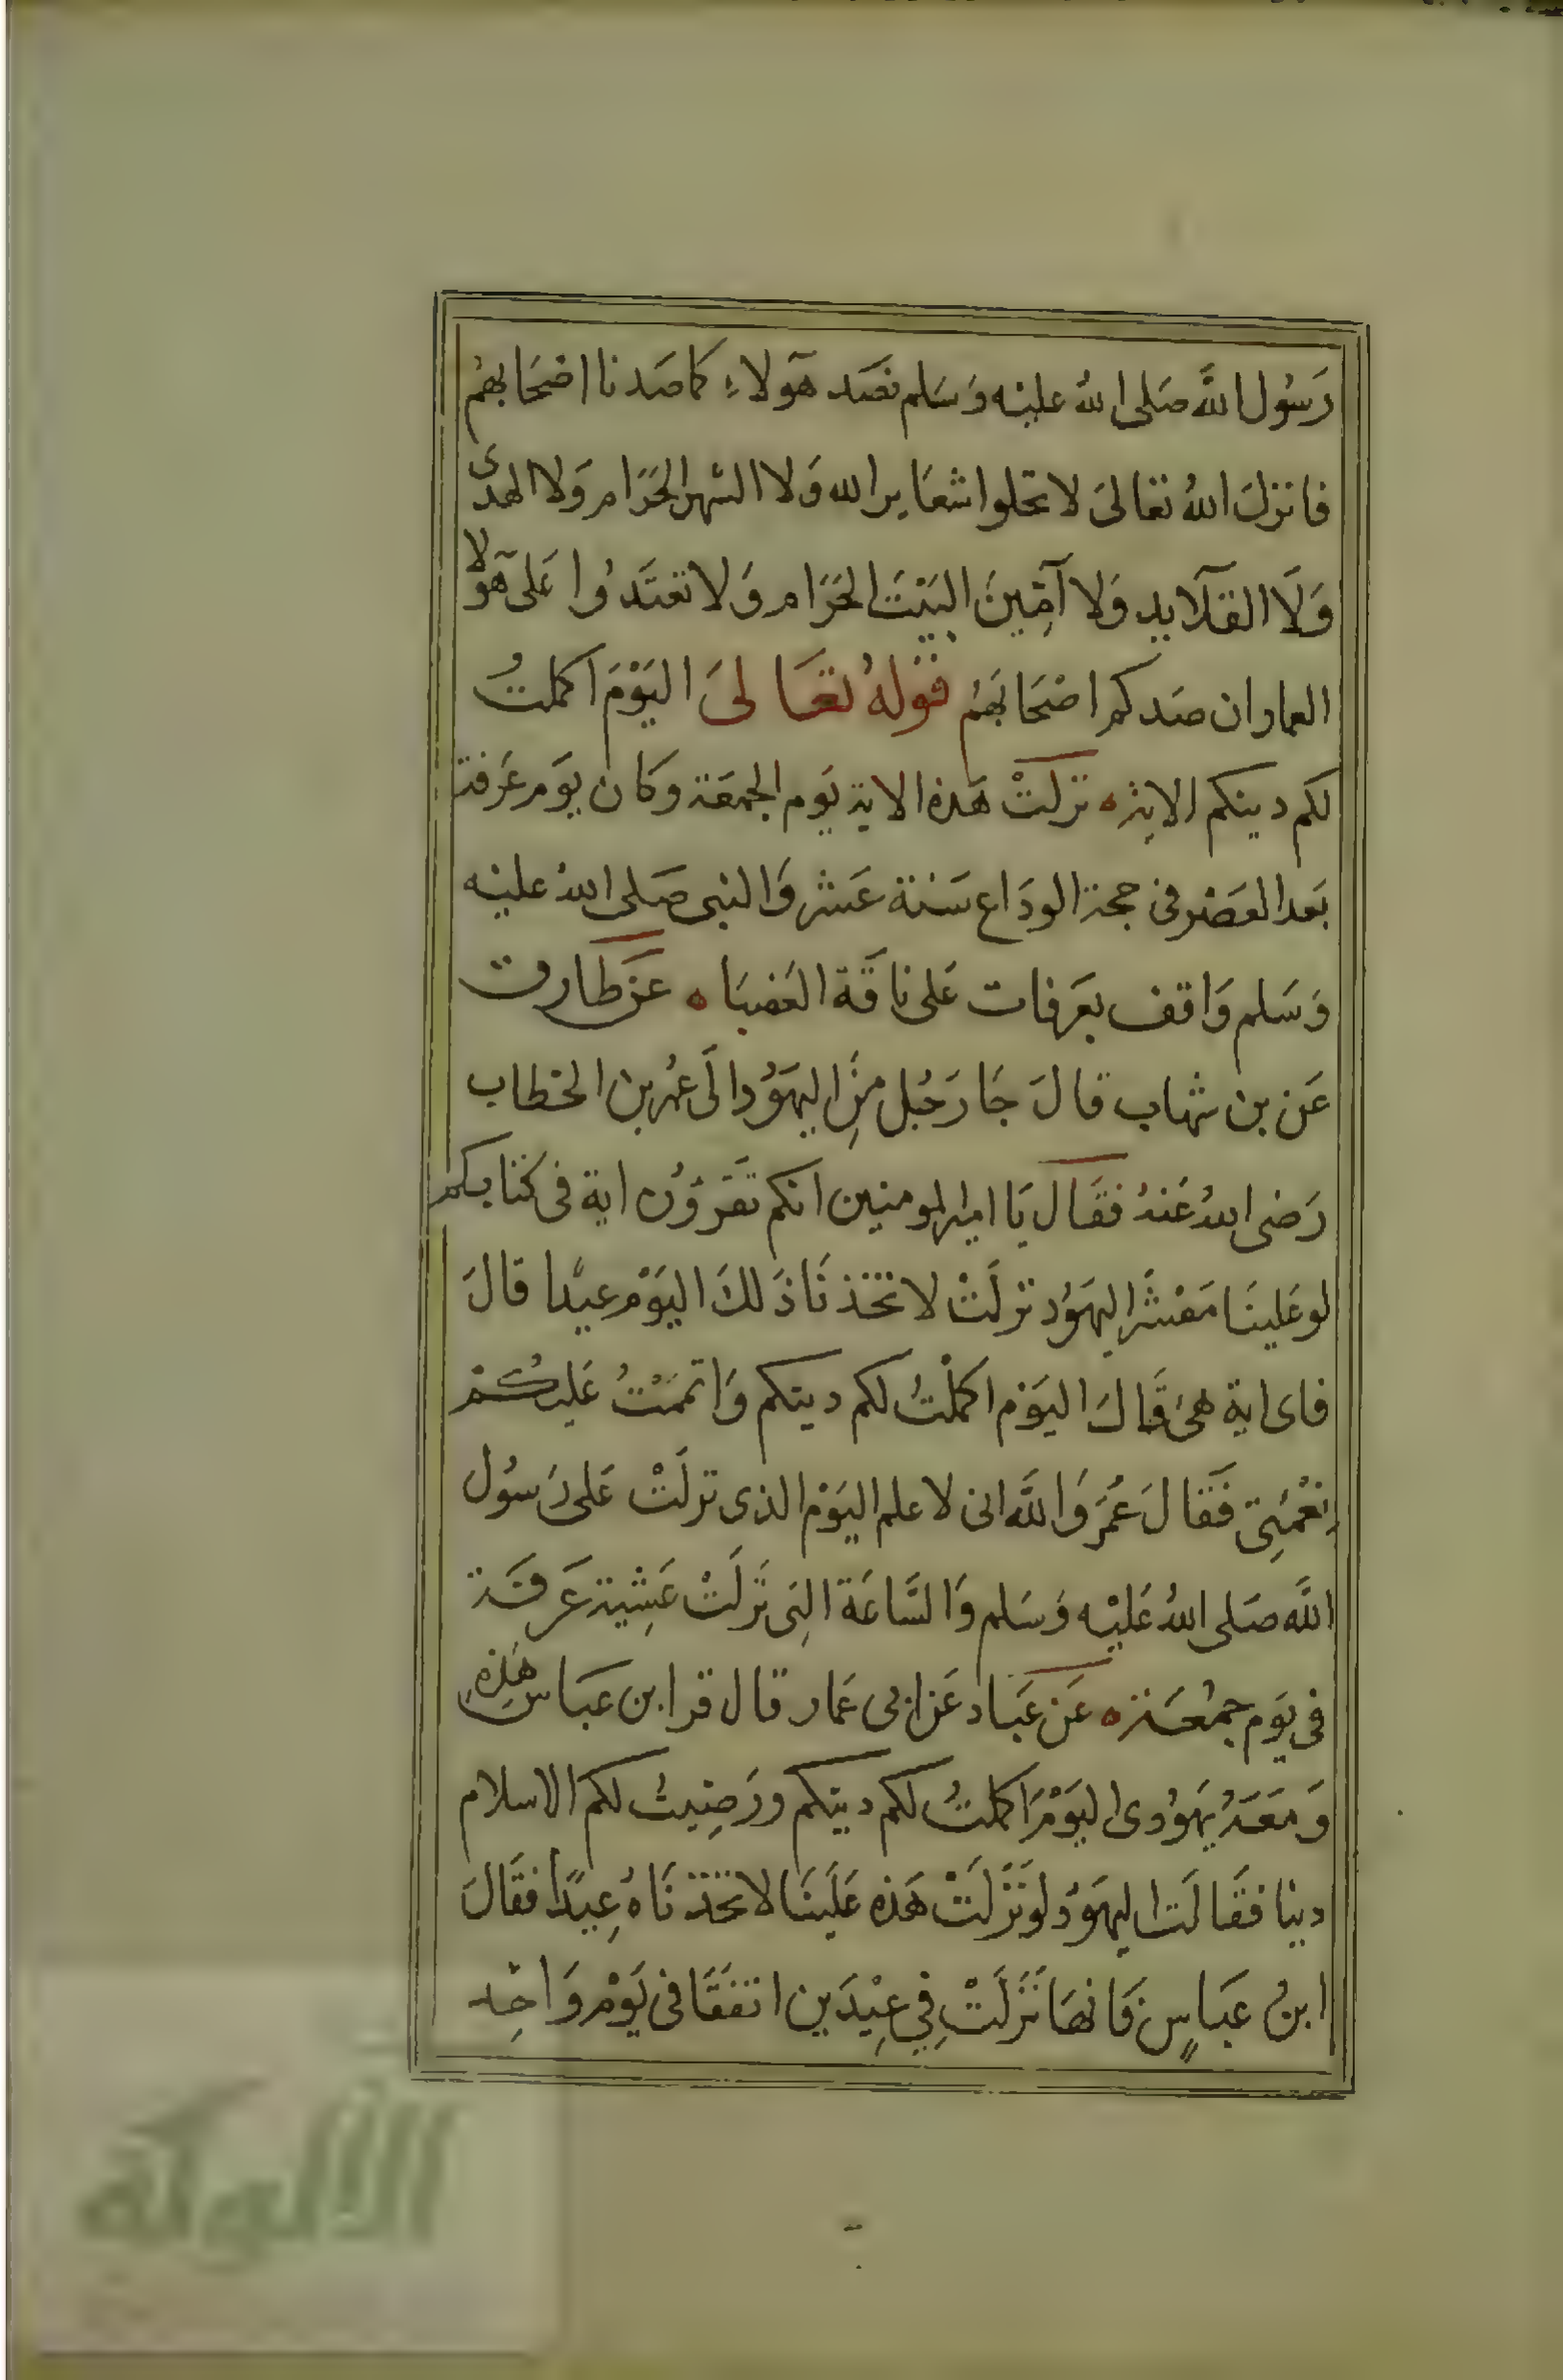 رَسُول اللَّه صَلى اللهُ عليْه وَسَلم نصَد هَولاءِ كما صَدنا اصْحَابهُم
فانزلَ اللهُ تعَالىَ لا تحلوا شعَاير الله وَلا الشهر الحَرَام وَلا الهدىَ
وَلَا القلَايد وَلا آمِّينَ البَيْتَ الحَرَام وَلا تعتَدوُا عَلى هَولا
العماران صَدكم اصْحَابهَمُ قوْلهُ تعَالىَ اليَوْمَ اكملتُ
لكم دينكم الايَة ه نزلتْ هَذه الاية يَوم الجمعَة وكان يوَم عَرفة
بَعد العَصْر فى حجة الودَاع سَنة عَشر وَالنبى صَلى اللهُ عليْه
وَسَلم وَاقف بعَرفات عَلى ناقَة العَضبَا ه عَن طارق
عَن بن شهاب قالَ جَا رَجُل مِنَ اليهَوُد الَى عُمر بن الخطاب
رَضى اللهُ عَنهُ فقَال يَا امير المومنين انكم تَقرؤوُن اية فى كتابكم
لو عَلينَا مَعْشَر اليهَوُد نزلَتْ لاتخذنَا ذَلكَ اليَوْم عيدًا قالَ
فاى اية هىَ قَالَ اليَوْم اكملْتُ لكم دينكم وَاتممَتُ عَليكُمْ
نِعْمَتِى فَقَالَ عُمَر وَاللَّه انى لاعلم اليَوْم الذى نزلَتْ عَلى رَسُول
اللَّه صَلى اللهُ عَليْه وَسَلم وَالسَّاعَة التِى نَزلَتْ عَشِية عَرفَة
فى يَوم جمُعَة ه عَن عَباد عَن ابى عَمار قال قرا ابن عبَاس هَذِهِ
وَمَعَهُ يهَوُدى اليَوْمَ اكملتُ لكم دينكم ورَضِيتُ لكم الاسلام
دينا فقَالَت اليهَوُد لو نَزَلَتْ هَذه عَلَينَا لاتخذنَاهُ عِيدًا فقَالَ
ابنُ عبَاسٍ فَانهَا نَزَلَتْ فِي عِيْدَين اتفَقَا فى يَوْم وَاحِد
الألوكة